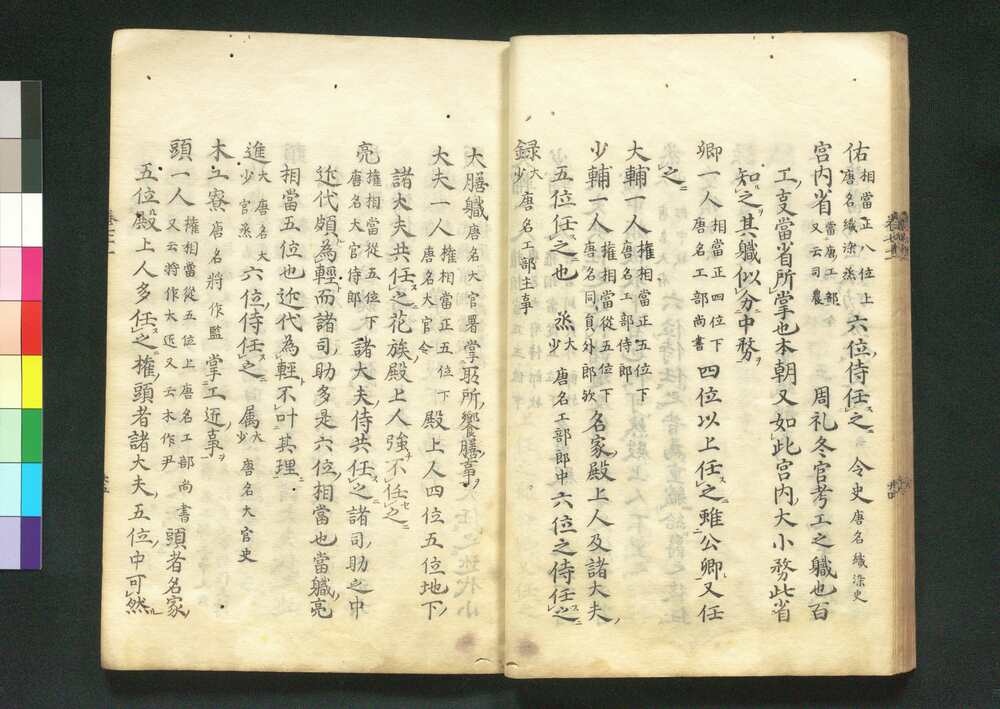 佑相當正八位上唐名織染丞六位侍任之令史唐名織染史
宮内省當唐工部又云司農周礼冬官考工之職也百
工支當省所掌也本朝又如此宮内大小務此省
知之其職似分中務
卿一人相當正四位下唐名工部尚書四位以上任之雖公卿又任
之
大輔一人權相當正五位下唐名工部侍郎
少輔一人權相當從五位下唐名同員外郎欤名家殿上人及諸大夫
五位任之也丞大少唐名工部郎中六位之侍任之
録大少唐名工部主事
大膳職唐名大官署掌取所饗膳事
大夫一人權相當正五位下唐名大官令殿上人四位五位地下
諸大夫共任之花族殿上人強不任之
亮權相當從五位下唐名大官侍郎諸大夫侍共任之諸司助之中
近代頗為輕而諸司助多是六位相當也當職亮
相當五位也近代為輕不叶其理
進大少唐名大官丞六位侍任之属大少唐名大官史
木工寮唐名將作監掌工近事
頭一人權相當從五位上唐名工部尚書又云將作大近又云木作尹頭者名家
五位殿上人多任之權頭者諸大夫五位中可然